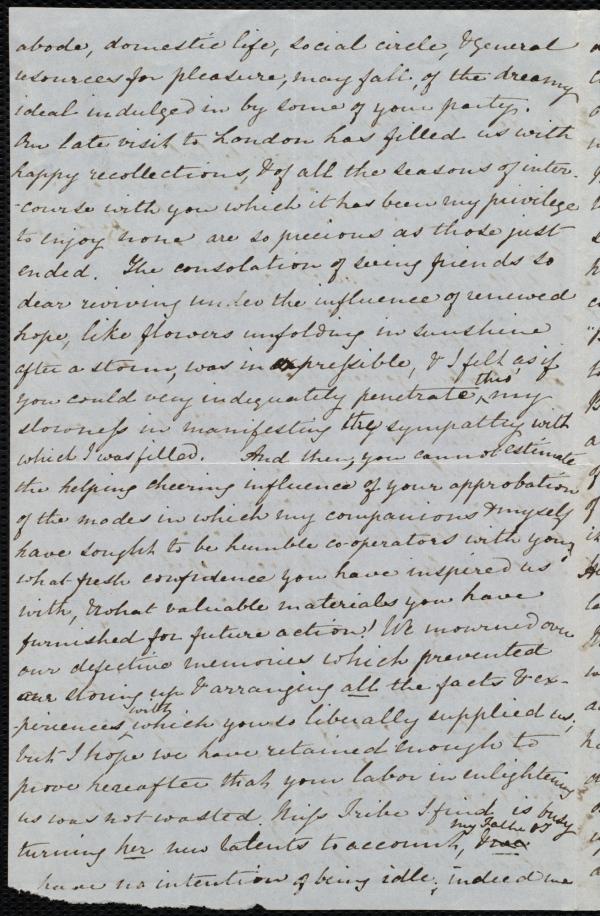 abode, domestic life, social circle, & general
resources for pleasure, may fall, of the dreamy
ideal indulged in by some of your party.
Our late visit to London has filled us with
happy recollections, & of all the seasons of inter-
-course with you which it has been my privilege
to enjoy none are so precious as those just
ended. The consolation of seeing friends so
dear reviving under the influence of renewed
hope, like flowers unfolding in sunshine
after a storm, was inexpressible, & I felt as if
you could very indequately penetrate, this my
slowness in manifesting the sympathy with
which I was filled. And then, you cannot estimate
the helping cheering influence of your approbation
of the modes in which my companions & myself
have sought to be humble co-operators with you,
what fresh confidence you have inspired us
with, & what valuable materials you have
furnished for future action! We mourned over
our defective memories which prevented
our storing up & arranging all the facts & ex-
-periences with which you so liberally supplied us;
but I hope we have retained enough to
prove hereafter that your labor in enlightening
us was not wasted. Miss Tribe I find is busy
turning her new talents to account, my Father & I
have no intention of being idle; indeed we